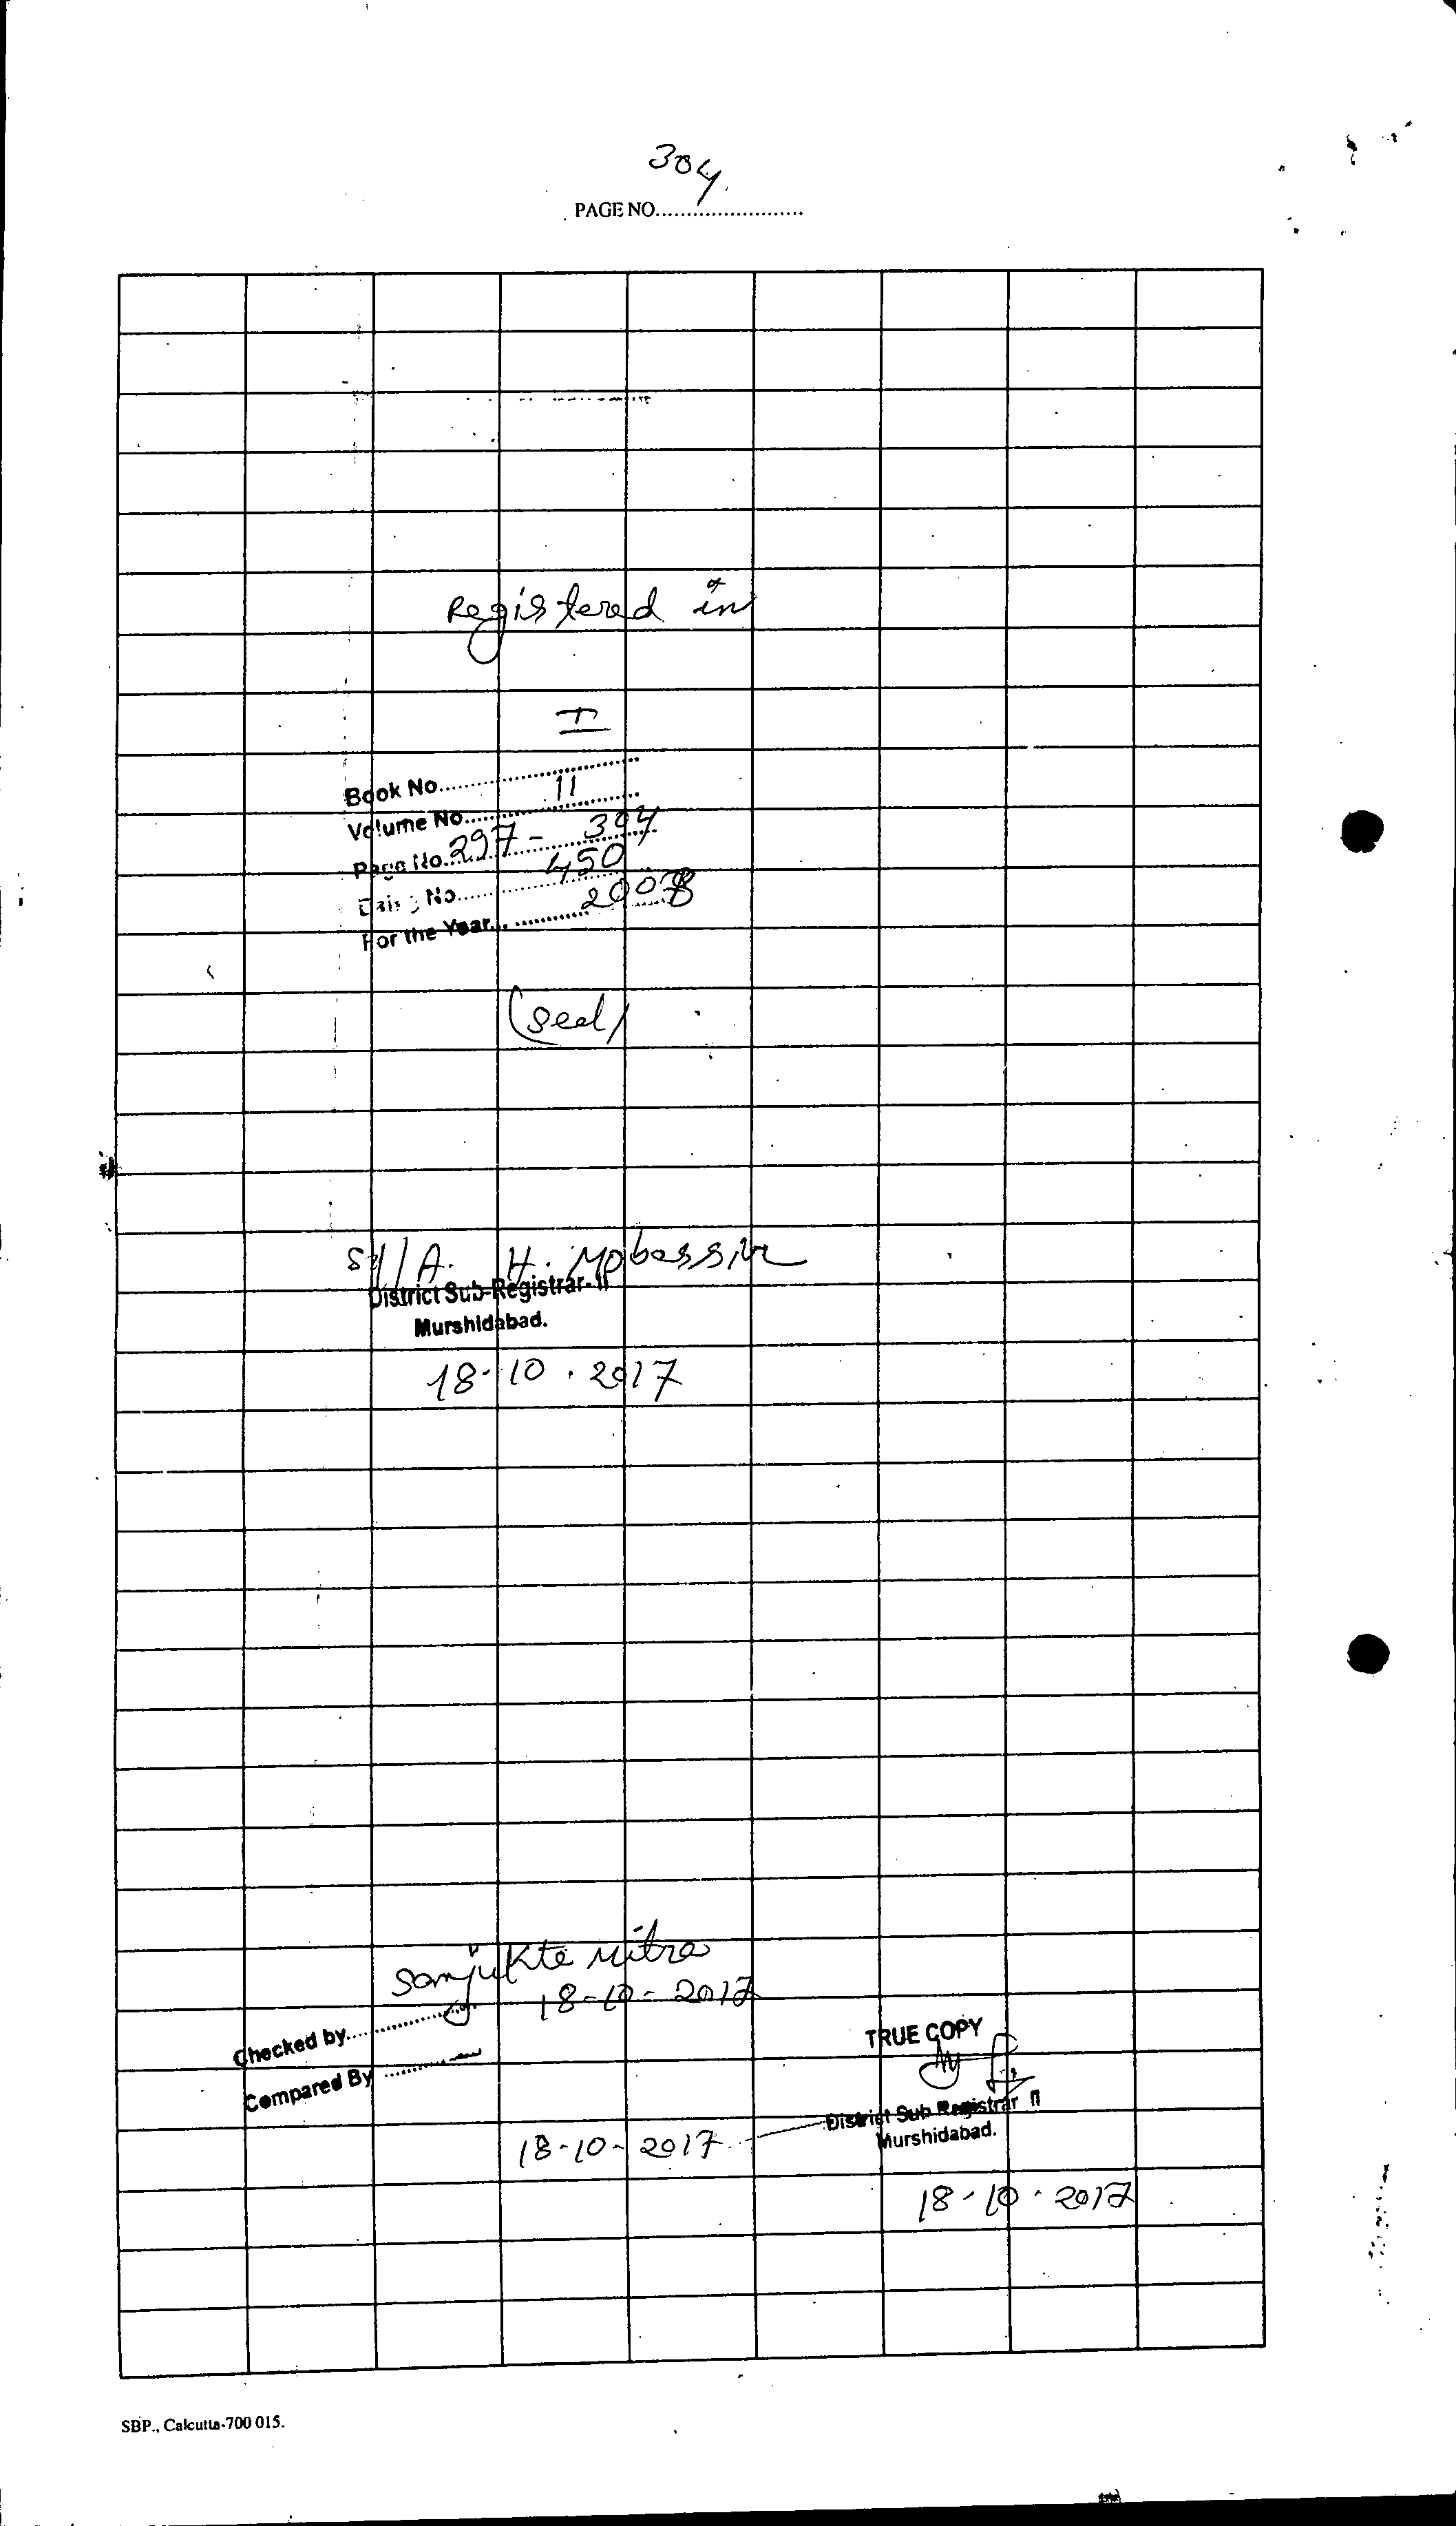 304
PAGE NO........................
Registered in
I
Book No..........................
Volume No. 11
Page No. 297 - 304
Being No. 450
For the Year 2008
(Seal)
Sd/ A. H. Mobassir
District Sub-Registrar-II
Murshidabad.
18-10.2017
Sanjukta Mitra
18-10-2017
Checked by....................
Compared By ................
TRUE COPY
District Sub Registrar II
Murshidabad.
18-10-2017
18-10-2017
SBP., Calcutta-700 015.